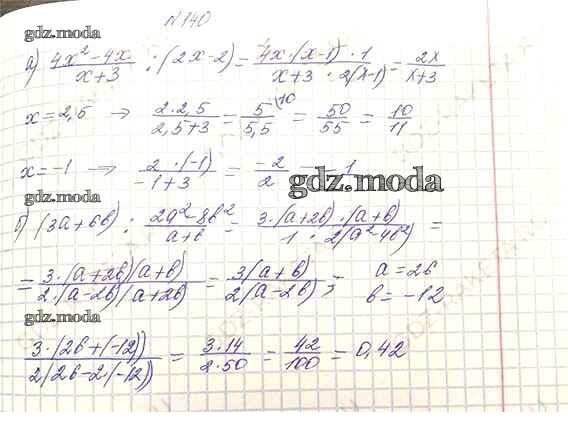 N 140
gdz.moda
а) (4x² - 4x)/(x+3) : (2x-2) = (4x·(x-1)·1)/(x+3 · 2(x-1)) = 2x/(x+3)
x = 2,5 → (2·2,5)/(2,5+3) = 5/5,5 \10 = 50/55 = 10/11
x = -1 → (2·(-1))/(-1+3) = -2/2 = -1
gdz.moda
gdz.moda
б) (3a+6b) : (2a² - 8b²)/(a+b) = (3·(a+2b)·(a+b))/(1 · 2(a² - 4b²)) =
= (3·(a+2b)(a+b))/(2·(a-2b)(a+2b)) = (3(a+b))/(2(a-2b)); a = 26
b = -12
gdz.moda
(3·(26+(-12)))/(2(26-2·(-12))) = (3·14)/(2·50) = 42/100 = 0,42